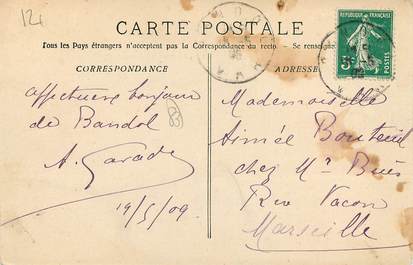 124
CARTE POSTALE
Tous les Pays étrangers n'acceptent pas la Correspondance du recto. – Se renseigner
CORRESPONDANCE
affectueux bonjour
de Bandol
A. Garade
19/5/09
ADRESSE
REPUBLIQUE FRANÇAISE
5c
POSTES
Mademoiselle
Aimée Bouteuil
chez Mr
Rue Vacon
Marseille